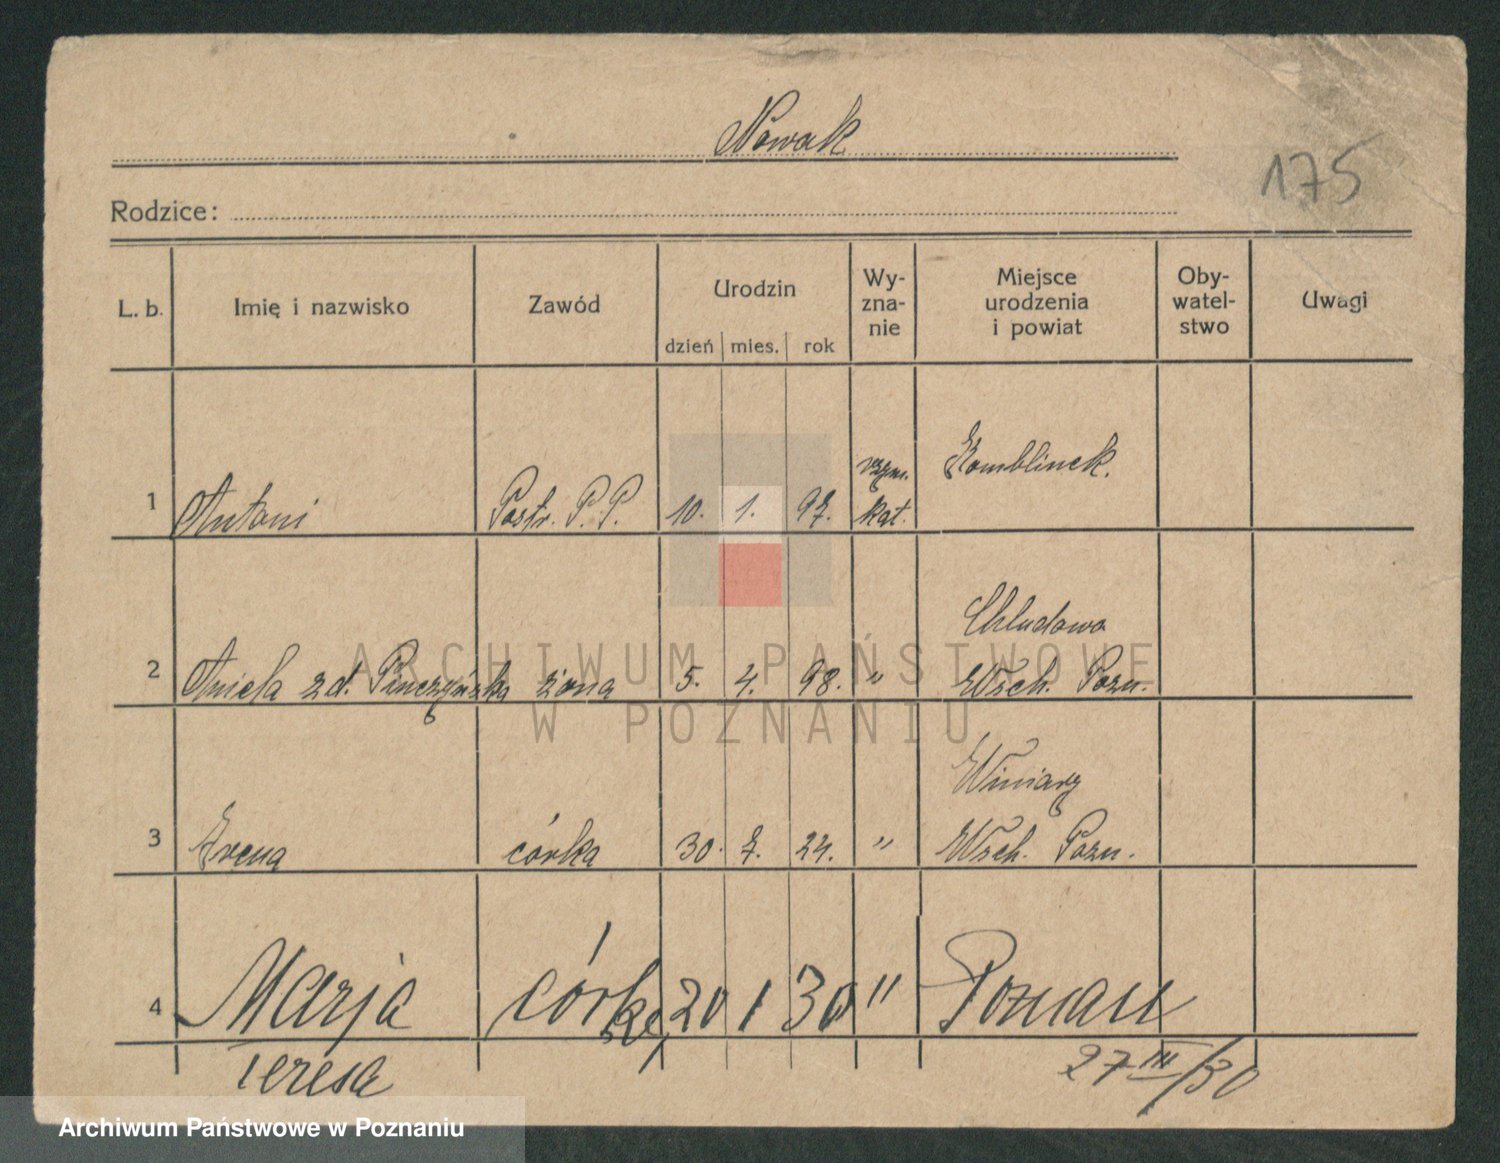 Nowak
175
Rodzice:
L. b. Imię i nazwisko Zawód Urodzin dzień mies. rok Wy-zna-nie Miejsce urodzenia i powiat Oby-watel-stwo Uwagi
Komblinek.
1 Antoni Postr. P. P. 10. 1. 97. rzym. kat.
Chludowo
2 Aniela zd. Pinczyńska żona 5. 4. 98. " Wsch. Pozn.
Winiary
3 Irena córka 30. 7. 24. " Wsch. Pozn.
4 Marja córka 20 1 30 " Poznań
Teresa 27 III/30
ARCHIWUM PAŃSTWOWE
W POZNANIU
Archiwum Państwowe w Poznaniu